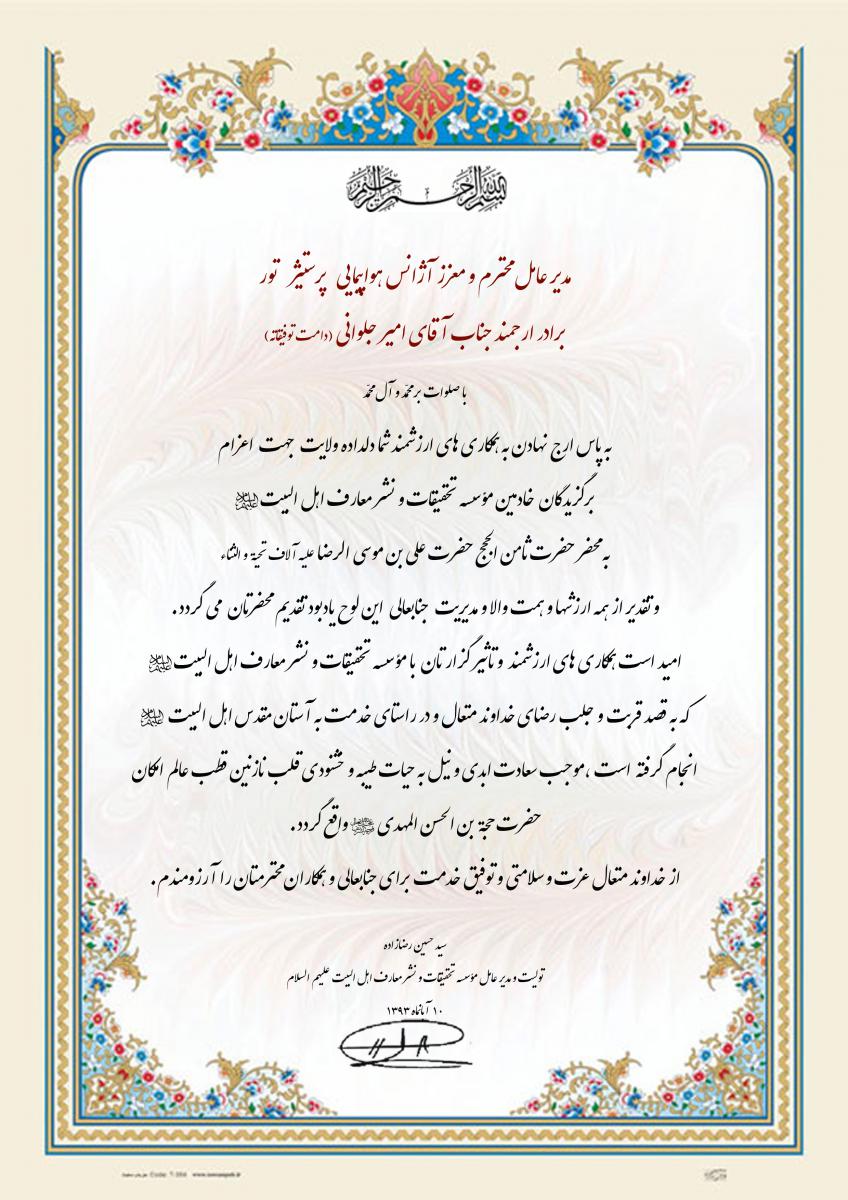 بسم الله الرحمن الرحیم
مدیر عامل محترم و معزز آژانس هواپیمایی پرستیژ تور
برادر ارجمند جناب آقای امیر جلوانی (دامت توفیقاته)
با صلوات بر محمّد و آل محمّد
به پاس ارج نهادن به همکاری های ارزشمند شما دلداده ولایت جهت اعزام
برگزیدگان خادمین مؤسسه تحقیقات و نشر معارف اهل البیت علیهم السلام
به محضر حضرت ثامن الحجج حضرت علی بن موسی الرضا علیه آلاف تحیة و الثناء
و تقدیر از همه ارزشها و همت والا و مدیریت جنابعالی این لوح یادبود تقدیم محضرتان می گردد.
امید است همکاری های ارزشمند و تاثیر گزارتان با مؤسسه تحقیقات و نشر معارف اهل البیت علیهم السلام
که به قصد قربت و جلب رضای خداوند متعال و در راستای خدمت به آستان مقدس اهل البیت علیهم السلام
انجام گرفته است ،موجب سعادت ابدی و نیل به حیات طیبه و خشنودی قلب نازنین قطب عالم امکان
حضرت حجة بن الحسن المهدی واقع گردد.
از خداوند متعال عزت و سلامتی و توفیق خدمت برای جنابعالی و همکاران محترمتان را آرزومندم.
سید حسین رضازاده
تولیت و مدیر عامل مؤسسه تحقیقات و نشر معارف اهل البیت علیهم السلام
۱۰ آبانماه ۱۳۹۳